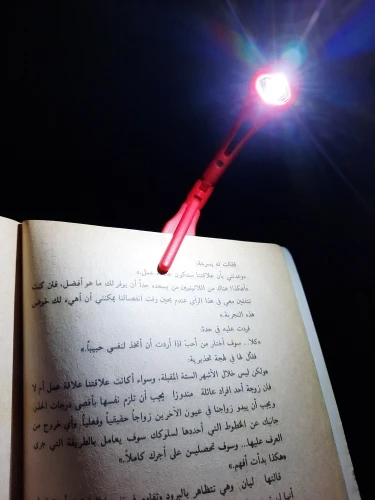 فقالت له بسرعة:
«وعدتني بأن علاقتنا ستكون علاقة عمل.»
«هكذا؟ هناك من اللاتينيين من يسعده جداً أن يوفر لك ما هو أفضل، فإن كنت
تثقين معي في هذا الرأي عندم يحين وقت انفصالنا يمكنني أن أهيء لك خوض
هذه التجربة.»
فردت عليه في حدة:
«كلا.. سوف أختار من أحب اذا أردت أن أتخذ لنفسي حبيباً.»
فقال لها في لهجة تحذيرية:
«ولكن ليس خلال الأشهر الستة المقبلة، وسواء أكانت علاقتنا علاقة عمل أم لا
فإن زوجة أحد افراد عائلة مندوزا يجب أن تلزم نفسها بأقصى درجات الحذر
ويجب أن يبدو زواجنا في عيون الآخرين زواجاً حقيقياً وفعلياً وأي خروج من
جانبك عن الخطوط التي أحددها لسلوكك سوف يعامل بالطريقة التي جرى
العرف عليها.. وسوف تحصلين على أجرك كاملاً.»
«هكذا بدأت أفهم.»
قالتها ليان وهي تتظاهر بالبرود